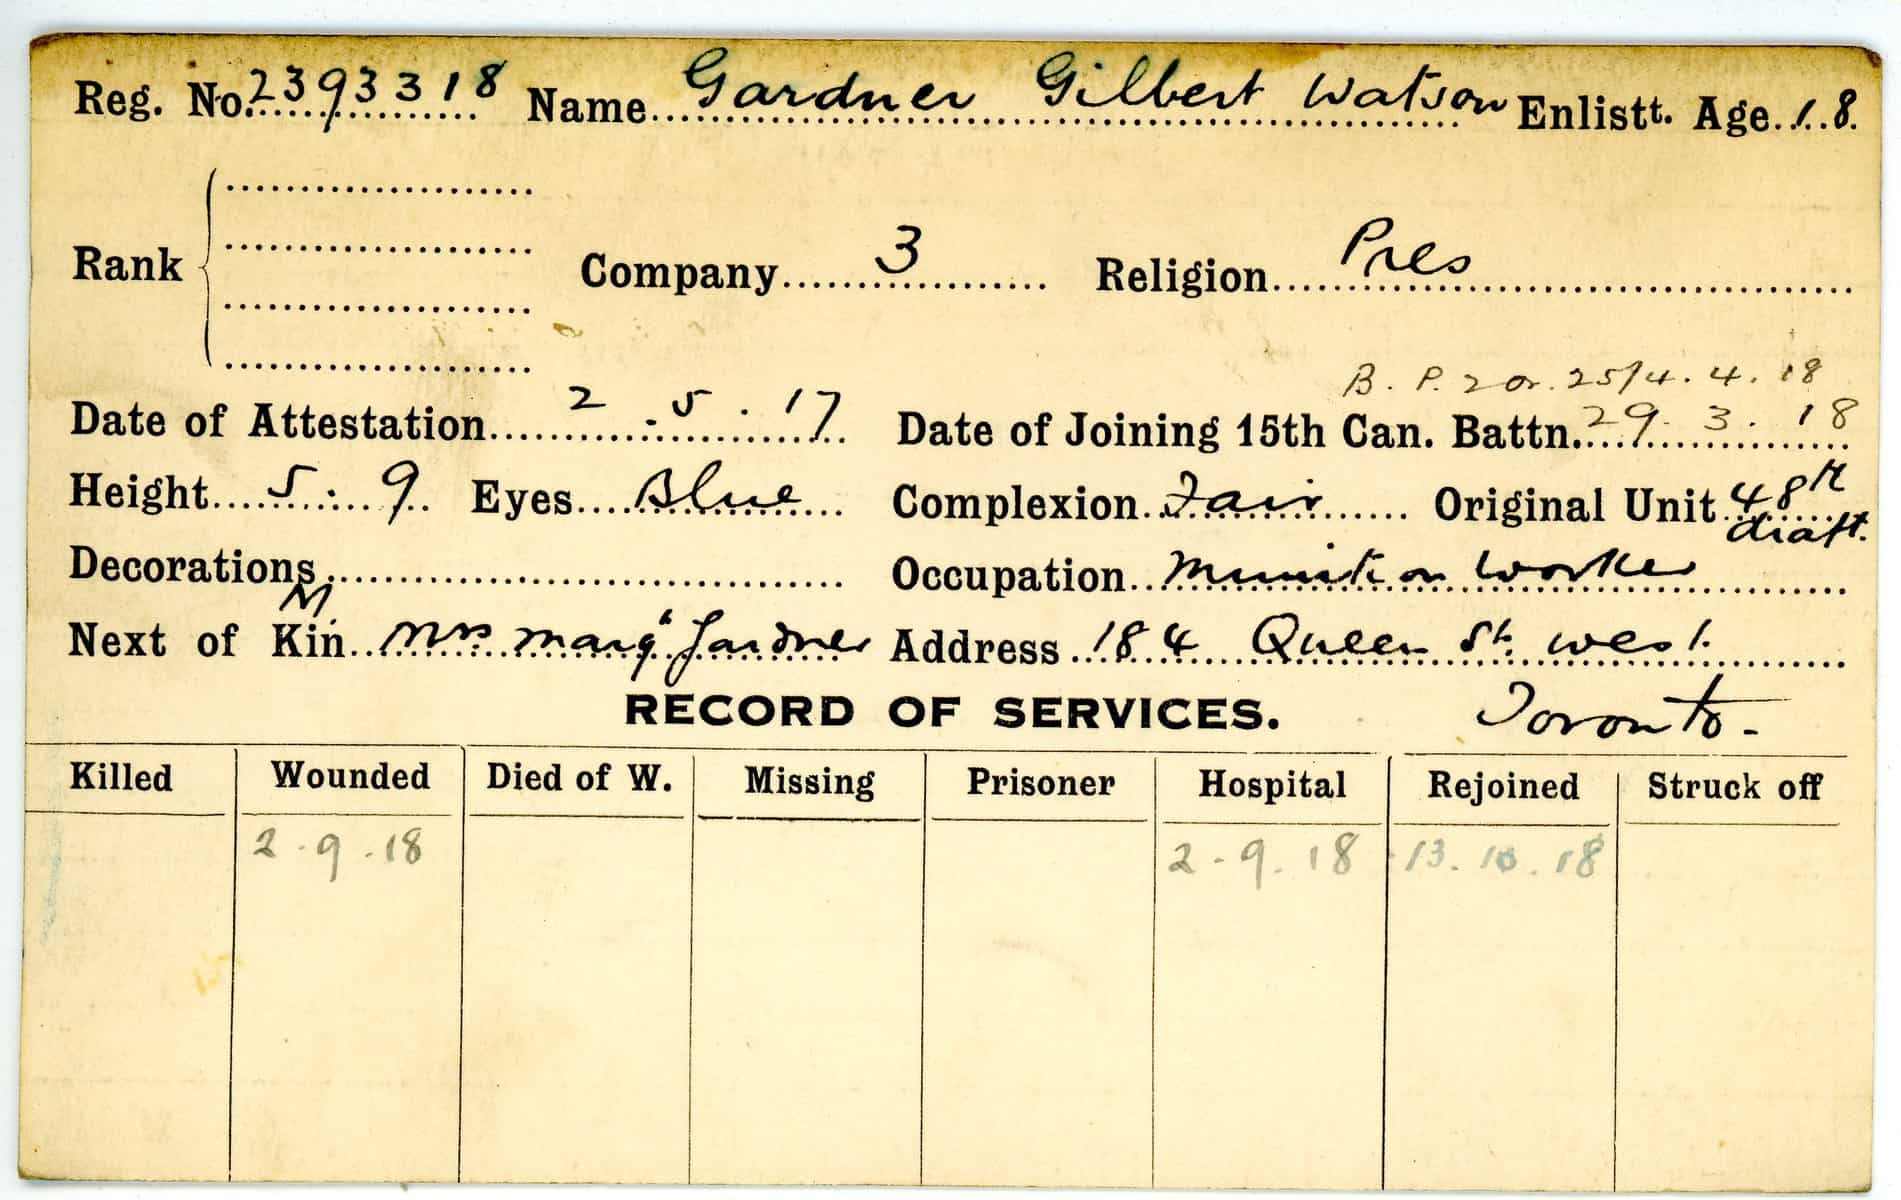 Reg. No. 2393318 Name Gardner Gilbert Watson Enlistt. Age 18.
Rank Company 3 Religion Pres
B. P. 2 or. 25/4.4.18
Date of Attestation 2.5.17 Date of Joining 15th Can. Battn. 29.3.18
Height 5.9 Eyes Blue Complexion Fair Original Unit 48th draft.
Decorations Occupation Munition Worker
M.
Next of Kin Mrs Margt Gardner Address 184 Queen St. West.
RECORD OF SERVICES. Toronto-
Killed Wounded Died of W. Missing Prisoner Hospital Rejoined Struck off
2.9.18 2-9.18 13.10.18